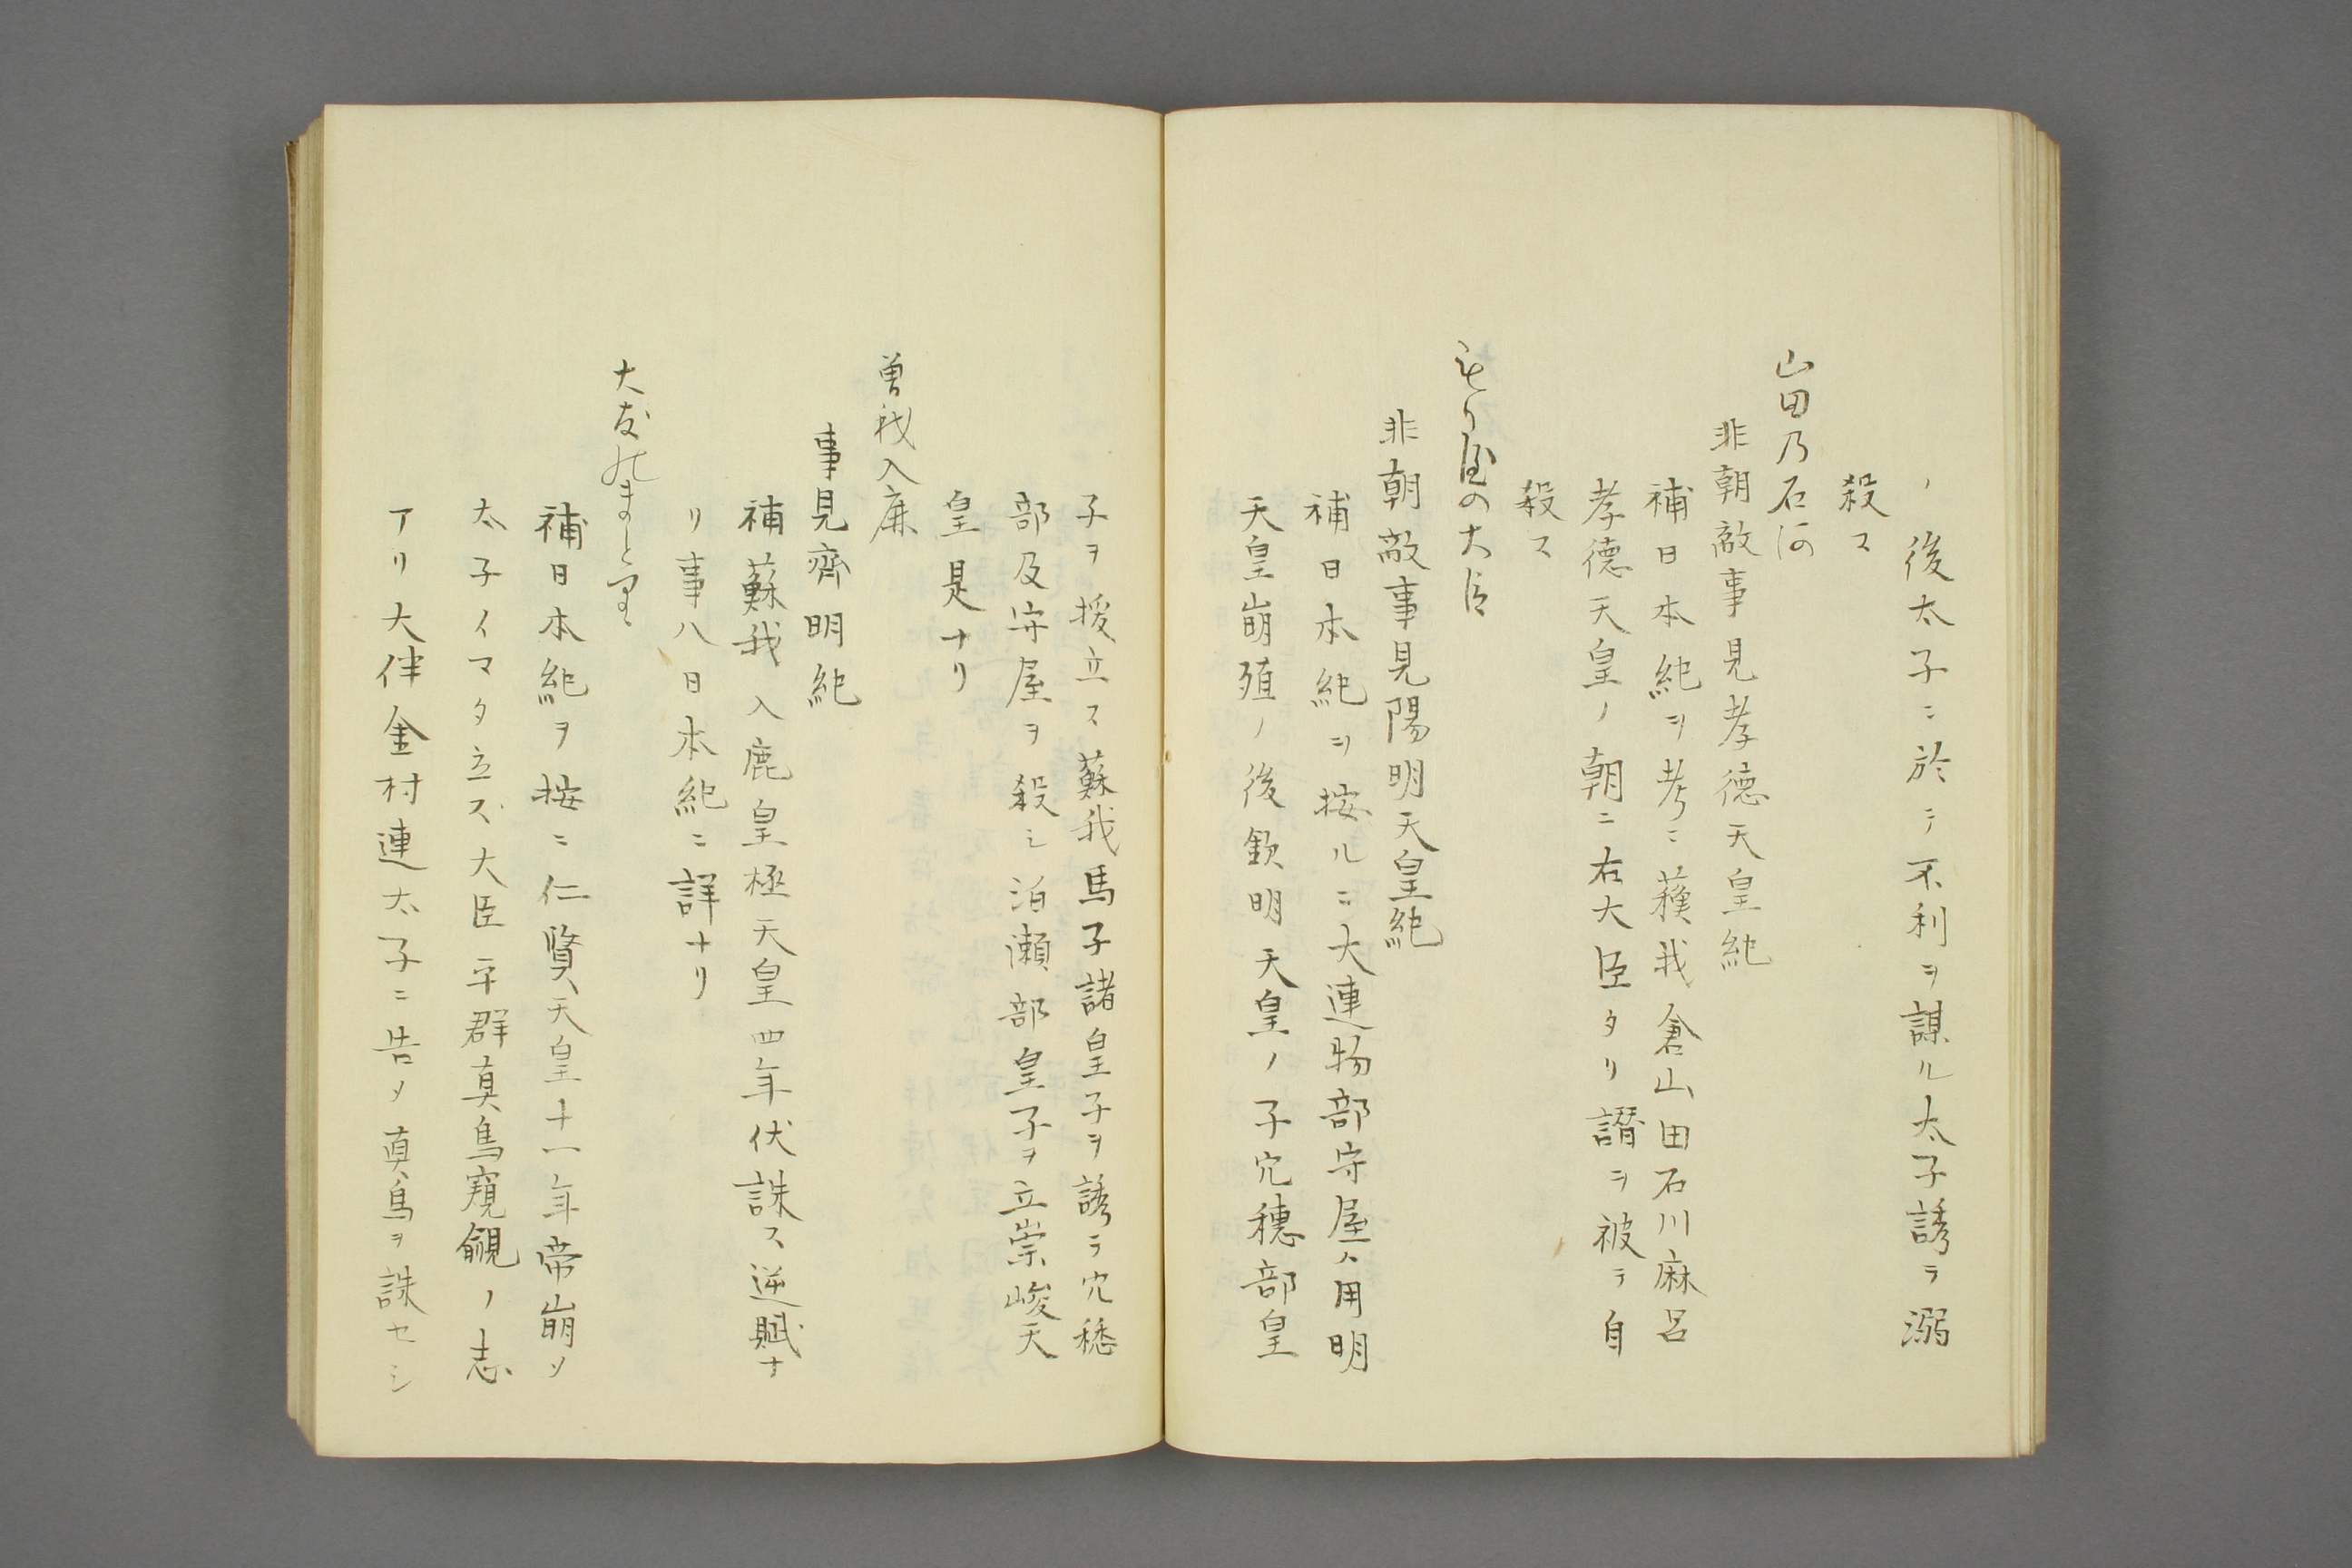 ノ後太子ニ於テ不利ヲ謀ル太子誘ヲ溺
殺ス
山田乃石河
非朝敵事見孝徳天皇紀
補日本紀ヲ考ニ蘓我倉山田石川麻呂
孝徳天皇ノ朝ニ右大臣タリ譖ヲ被ラ自
殺ス
もり屋の大臣
非朝敵事見陽明天皇紀
補日本紀ヲ按ルニ大連物部守屋ハ用明
天皇崩殖ノ後欽明天皇ノ子穴穂部皇
子ヲ援立ス蘇我馬子諸皇子ヲ誘ラ穴穂
部及守屋ヲ殺シ泊瀬部皇子ヲ立崇峻天
皇是ナリ
曽我入鹿
事見齊明紀
補蘇我入鹿皇極天皇四年伏誅ス逆賊ナ
リ事ハ日本紀ニ詳ナリ
大友のまとり
補日本紀ヲ按ニ仁賢天皇十一年帝崩ソ
太子イマタ立ズ大臣平群真鳥窺覦ノ志
アリ大伴金村連太子ニ告メ真鳥ヲ誅セシ